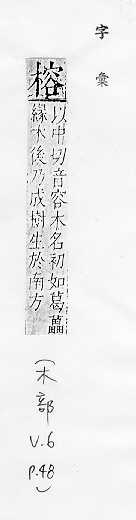 字彙
榕
以中切音容木名初如葛藟
緣木後乃成樹生於南方
(木部
V.6
P.48)